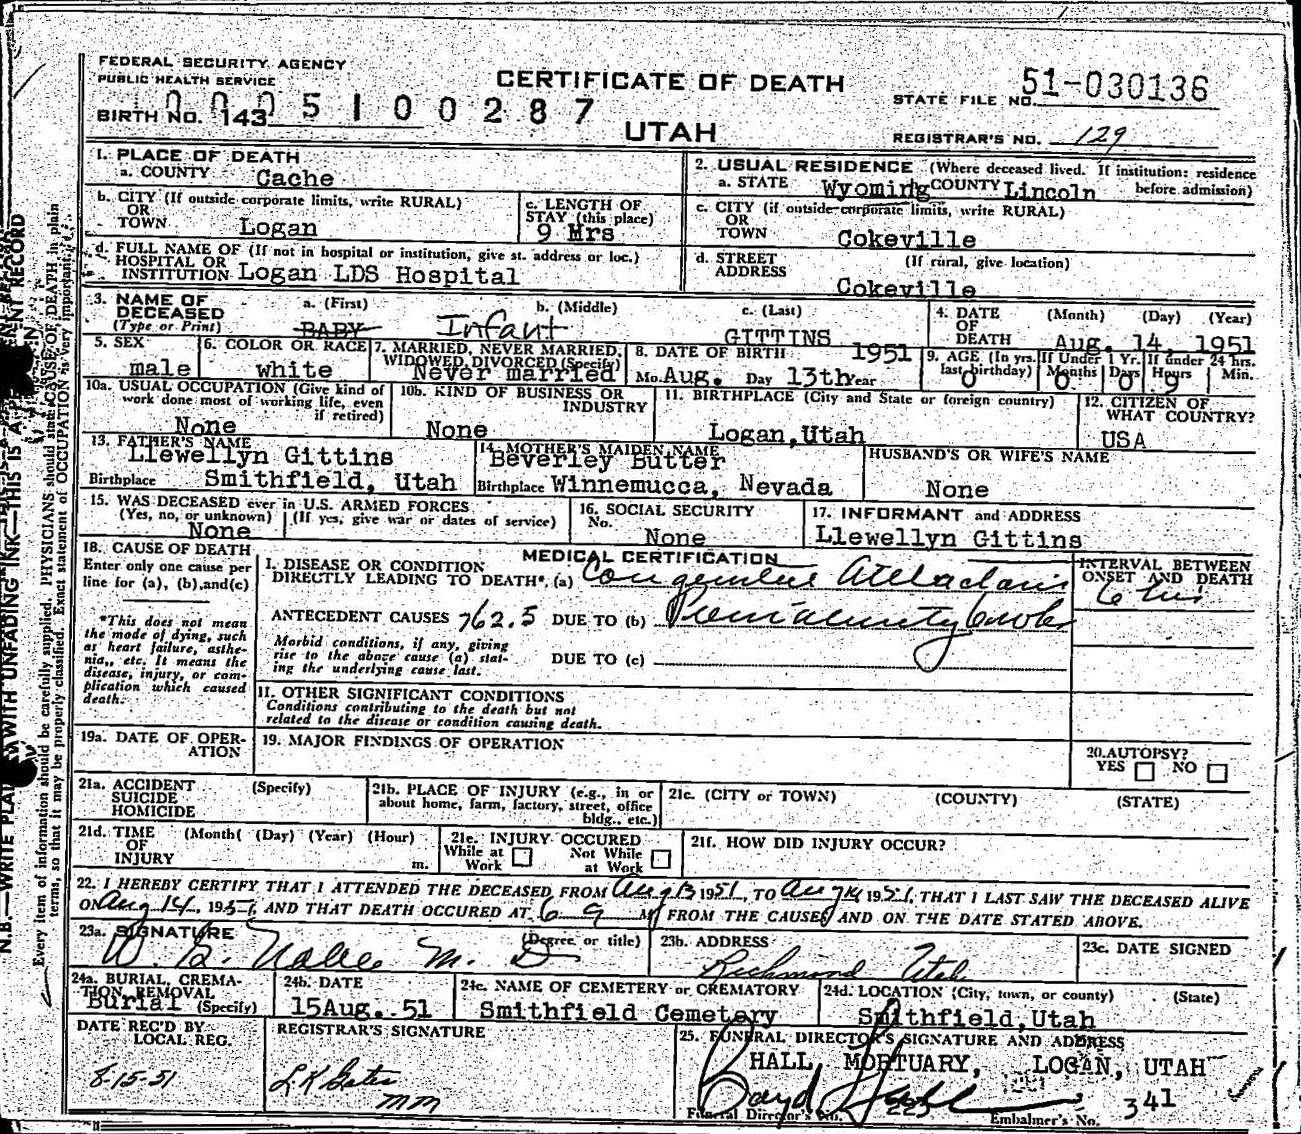 FEDERAL SECURITY AGENCY
PUBLIC HEALTH SERVICE
CERTIFICATE OF DEATH
STATE FILE NO. 51-030136
BIRTH NO. 143 0005100287
UTAH
REGISTRAR'S NO. 129
1. PLACE OF DEATH
a. COUNTY Cache
2. USUAL RESIDENCE (Where deceased lived. If institution: residence before admission)
a. STATE Wyoming COUNTY Lincoln
b. CITY (If outside corporate limits, write RURAL) OR TOWN Logan
c. LENGTH OF STAY (this place) 9 Hrs
c. CITY (if outside corporate limits, write RURAL) OR TOWN Cokeville
d. FULL NAME OF (If not in hospital or institution, give st. address or loc.) HOSPITAL OR INSTITUTION Logan LDS Hospital
d. STREET ADDRESS (If rural, give location) Cokeville
3. NAME OF DECEASED (Type or Print)
a. (First) BABY Infant
b. (Middle)
c. (Last) GITTINS
4. DATE OF DEATH (Month) (Day) (Year) Aug. 14, 1951
5. SEX male
6. COLOR OR RACE white
7. MARRIED, NEVER MARRIED, WIDOWED, DIVORCED (Specify) Never married
8. DATE OF BIRTH 1951 Mo. Aug. Day 13th Year
9. AGE (In yrs. last birthday) 0 If Under 1 Yr. Months 0 Days 0 If under 24 hrs. Hours 9 Min.
10a. USUAL OCCUPATION (Give kind of work done most of working life, even if retired) None
10b. KIND OF BUSINESS OR INDUSTRY None
11. BIRTHPLACE (City and State or foreign country) Logan, Utah
12. CITIZEN OF WHAT COUNTRY? USA
13. FATHER'S NAME Llewellyn Gittins
Birthplace Smithfield, Utah
14. MOTHER'S MAIDEN NAME Beverley Butter
Birthplace Winnemucca, Nevada
HUSBAND'S OR WIFE'S NAME None
15. WAS DECEASED ever in U.S. ARMED FORCES (Yes, no, or unknown) None (If yes, give war or dates of service)
16. SOCIAL SECURITY No. None
17. INFORMANT and ADDRESS Llewellyn Gittins
18. CAUSE OF DEATH
Enter only one cause per line for (a), (b), and (c)
*This does not mean the mode of dying, such as heart failure, asthenia,, etc. It means the disease, injury, or complication which caused death.
MEDICAL CERTIFICATION
I. DISEASE OR CONDITION DIRECTLY LEADING TO DEATH*. (a)
INTERVAL BETWEEN ONSET AND DEATH
ANTECEDENT CAUSES 762.5 DUE TO (b)
Morbid conditions, if any, giving rise to the above cause (a) stating the underlying cause last.
DUE TO (c)
II. OTHER SIGNIFICANT CONDITIONS
Conditions contributing to the death but not related to the disease or condition causing death.
19a. DATE OF OPERATION
19. MAJOR FINDINGS OF OPERATION
20. AUTOPSY? YES NO
21a. ACCIDENT SUICIDE HOMICIDE (Specify)
21b. PLACE OF INJURY (e.g., in or about home, farm, factory, street, office bldg., etc.)
21c. (CITY or TOWN) (COUNTY) (STATE)
21d. TIME OF INJURY (Month( (Day) (Year) (Hour) m.
21e. INJURY OCCURED While at Work Not While at Work
21f. HOW DID INJURY OCCUR?
22. I HEREBY CERTIFY THAT I ATTENDED THE DECEASED FROM Aug 13 1951, TO Aug 14 1951, THAT I LAST SAW THE DECEASED ALIVE
ON Aug 14, 1951, AND THAT DEATH OCCURED AT M FROM THE CAUSES AND ON THE DATE STATED ABOVE.
23a. SIGNATURE (Degree or title) M. D
23b. ADDRESS Richmond Utah
23c. DATE SIGNED
24a. BURIAL, CREMATION, REMOVAL (Specify) Burial
24b. DATE 15 Aug. 51
24c. NAME OF CEMETERY or CREMATORY Smithfield Cemetery
24d. LOCATION (City, town, or county) (State) Smithfield, Utah
DATE REC'D BY LOCAL REG. 8-15-51
REGISTRAR'S SIGNATURE
mm
25. FUNERAL DIRECTOR'S SIGNATURE AND ADDRESS
HALL MORTUARY, LOGAN, UTAH
Boyd Hall
Funeral Director's No. 223 Embalmer's No. 341
Every item of information should be carefully supplied. PHYSICIANS should state CAUSE OF DEATH in plain
terms, so that it may be properly classified. Exact statement of OCCUPATION is very important.